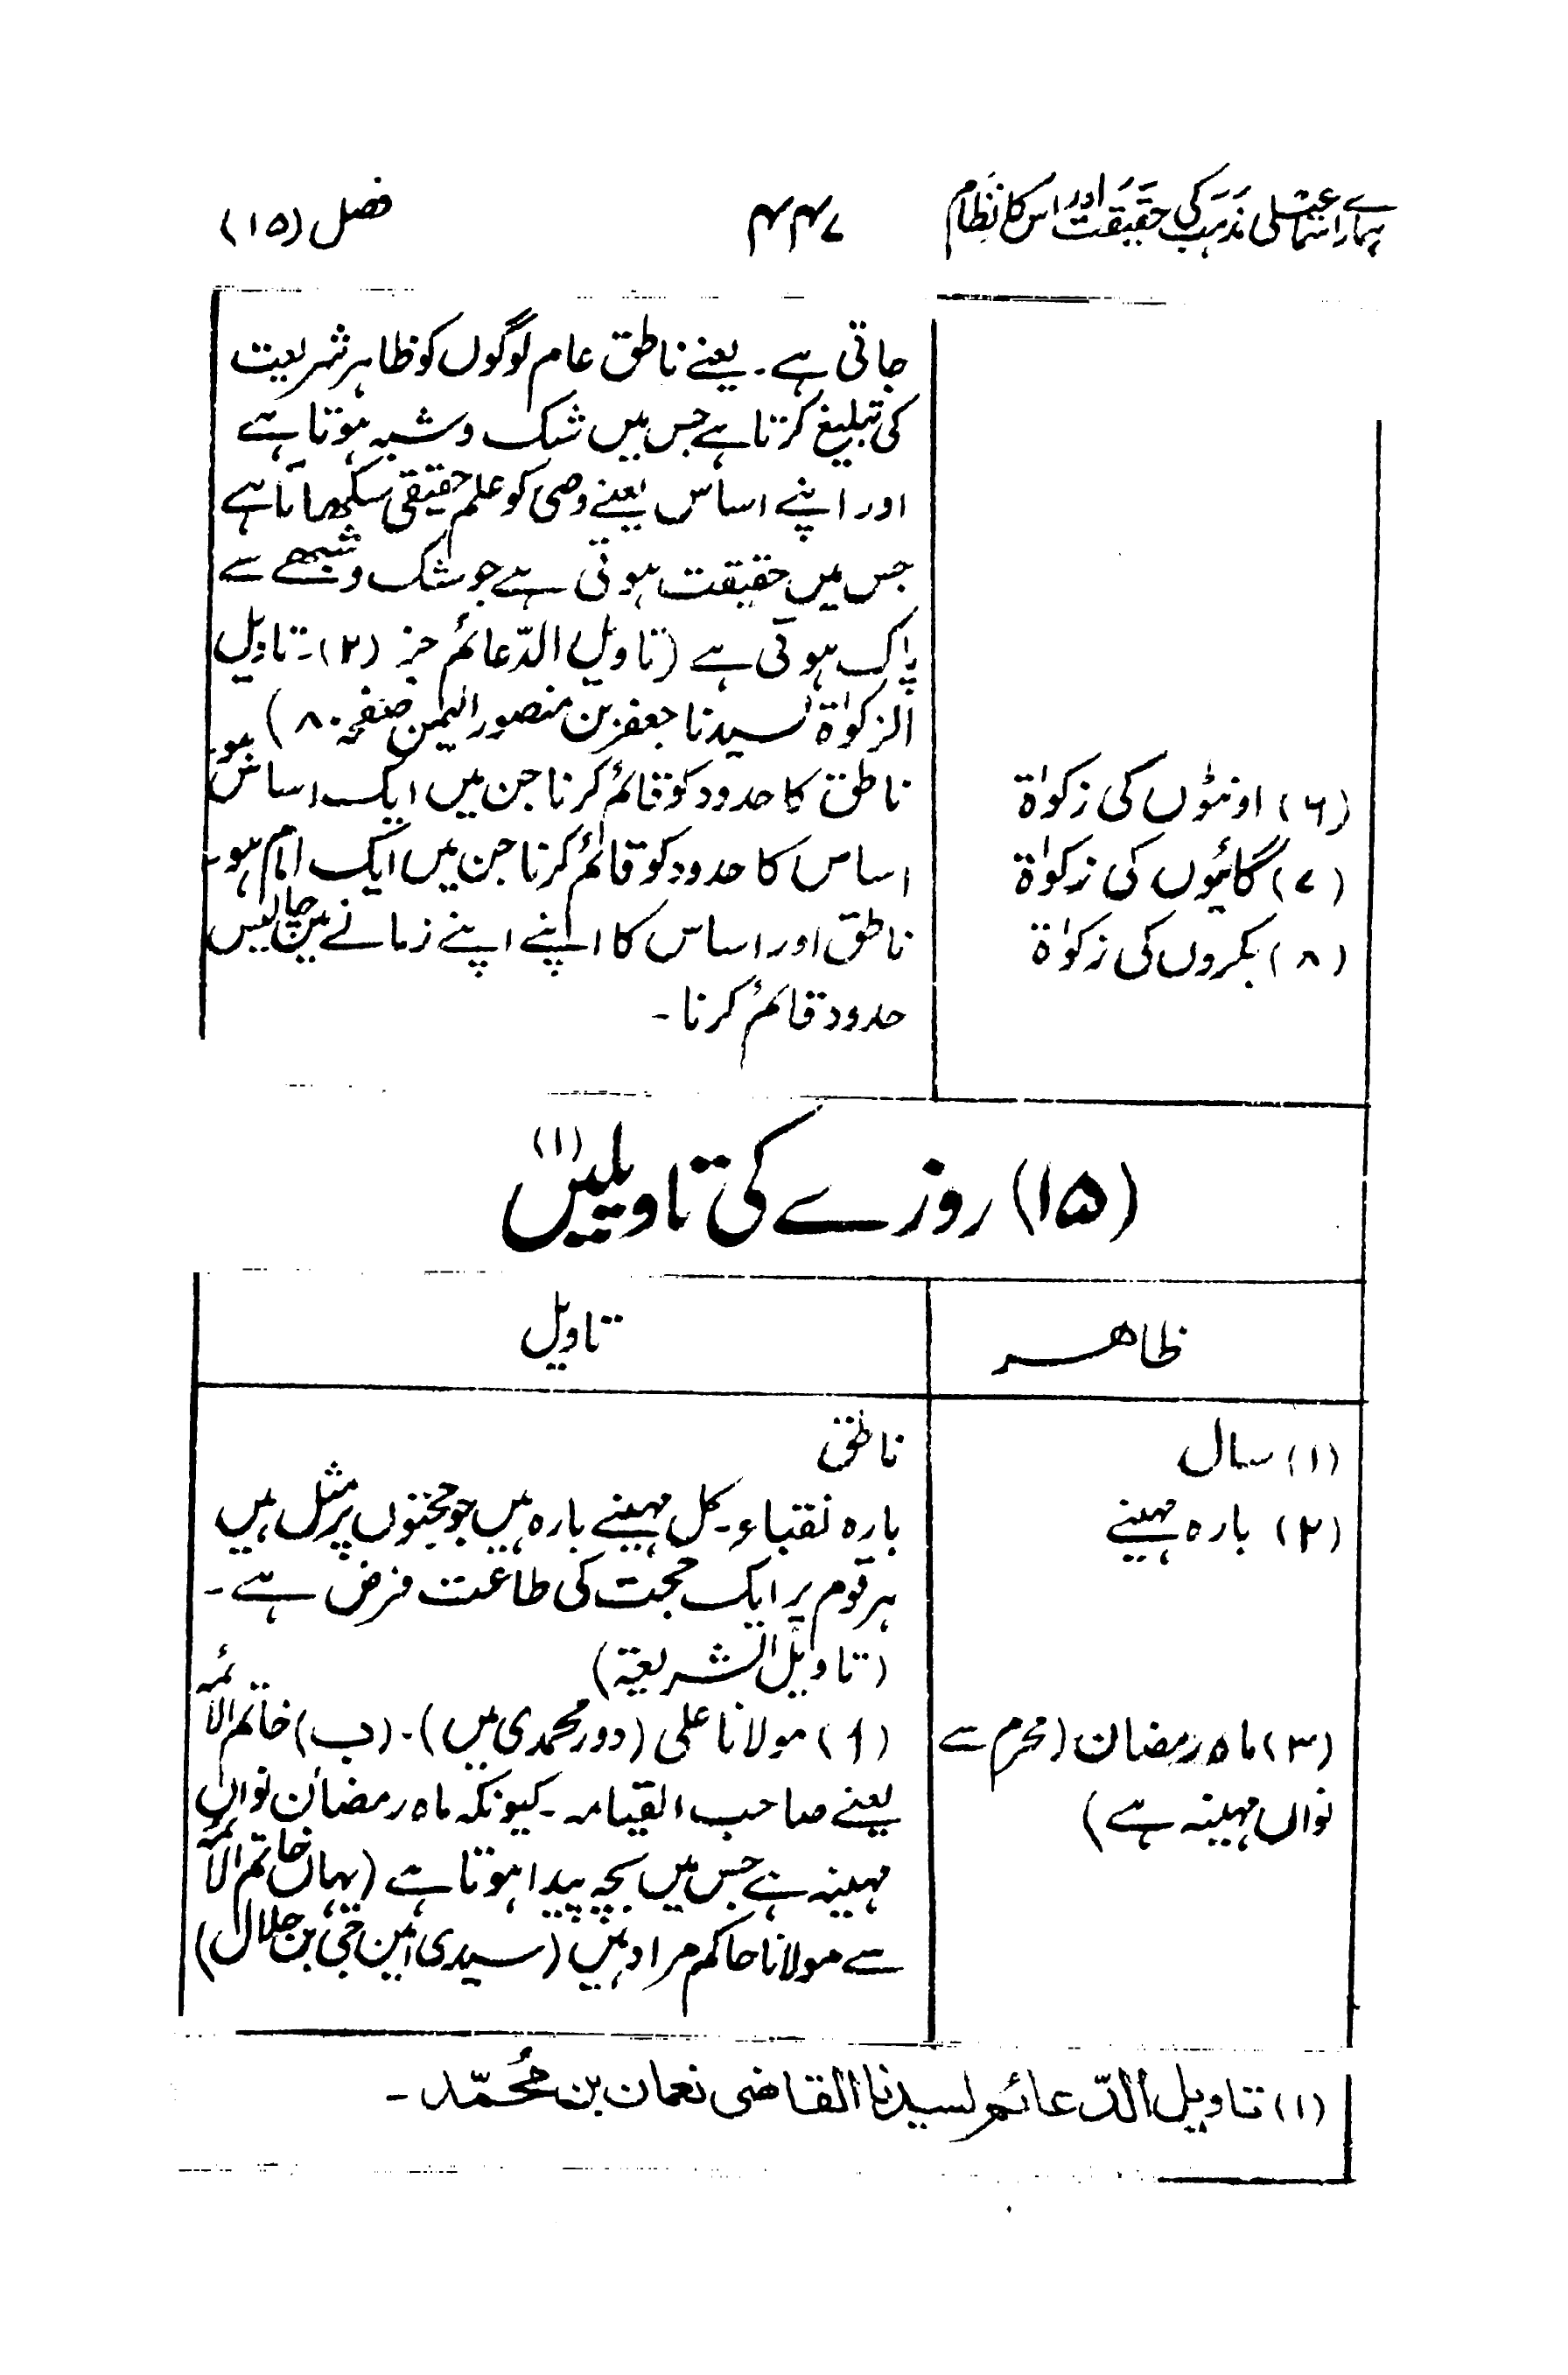 ہمارے اسماعیلی مذہب کی حقیقت اور اس کا نظام
۴۴۷
فصل (۱۵)
جاتی ہے۔ یعنے ناطق عام لوگوں کو ظاہر شریعت
کی تبلیغ کرتا ہے جس میں شک و شبہ ہوتا ہے
اور اپنے اساس یعنے وصی کو علم حقیقی سکھاتا ہے
جس میں حقیقت ہوتی ہے جو شک و شبھے سے
پاک ہوتی ہے (تاویل الدّعائم جز (۲)۔ تاویل
الزکوٰۃ لسیدنا جعفر بن منصور الیمن صفحہ ۸۰)
(۶) اونٹوں کی زکوٰۃ
ناطق کا حدود کو قائم کرنا جن میں ایک اساس ہو۔
(۷) گائیوں کی زکوٰۃ
اساس کا حدود کو قائم کرنا جن میں ایک امام ہو۔
(۸) بکروں کی زکوٰۃ
ناطق اور اساس کا اپنے اپنے زمانے میں چالیس
حدود قائم کرنا۔
(۱۵) روزے کی تاویلیں (۱)
ظاہر
تاویل
(۱) سال
ناطق
(۲) بارہ مہینے
بارہ نقباء۔ کل مہینے بارہ ہیں جو حجتوں پر مثل ہیں
ہر قوم پر ایک حجت کی طاعت فرض ہے۔
(تاویل الشریعۃ)
(۳) ماہ رمضان (محرم سے
نواں مہینہ ہے)
(ا) مولانا علی (دور محمدی میں)۔ (ب) خاتم الائمہ
یعنے صاحب القیامہ۔ کیونکہ ماہ رمضان نواں
مہینہ ہے جس میں بچہ پیدا ہوتا ہے (یہاں خاتم الائمہ
سے مولانا حاکم مراد ہیں (سیدی امین جی بن جلال)
(۱) تاویل الدّعائم لسیدنا القاضی نعمان بن مُحمّد۔